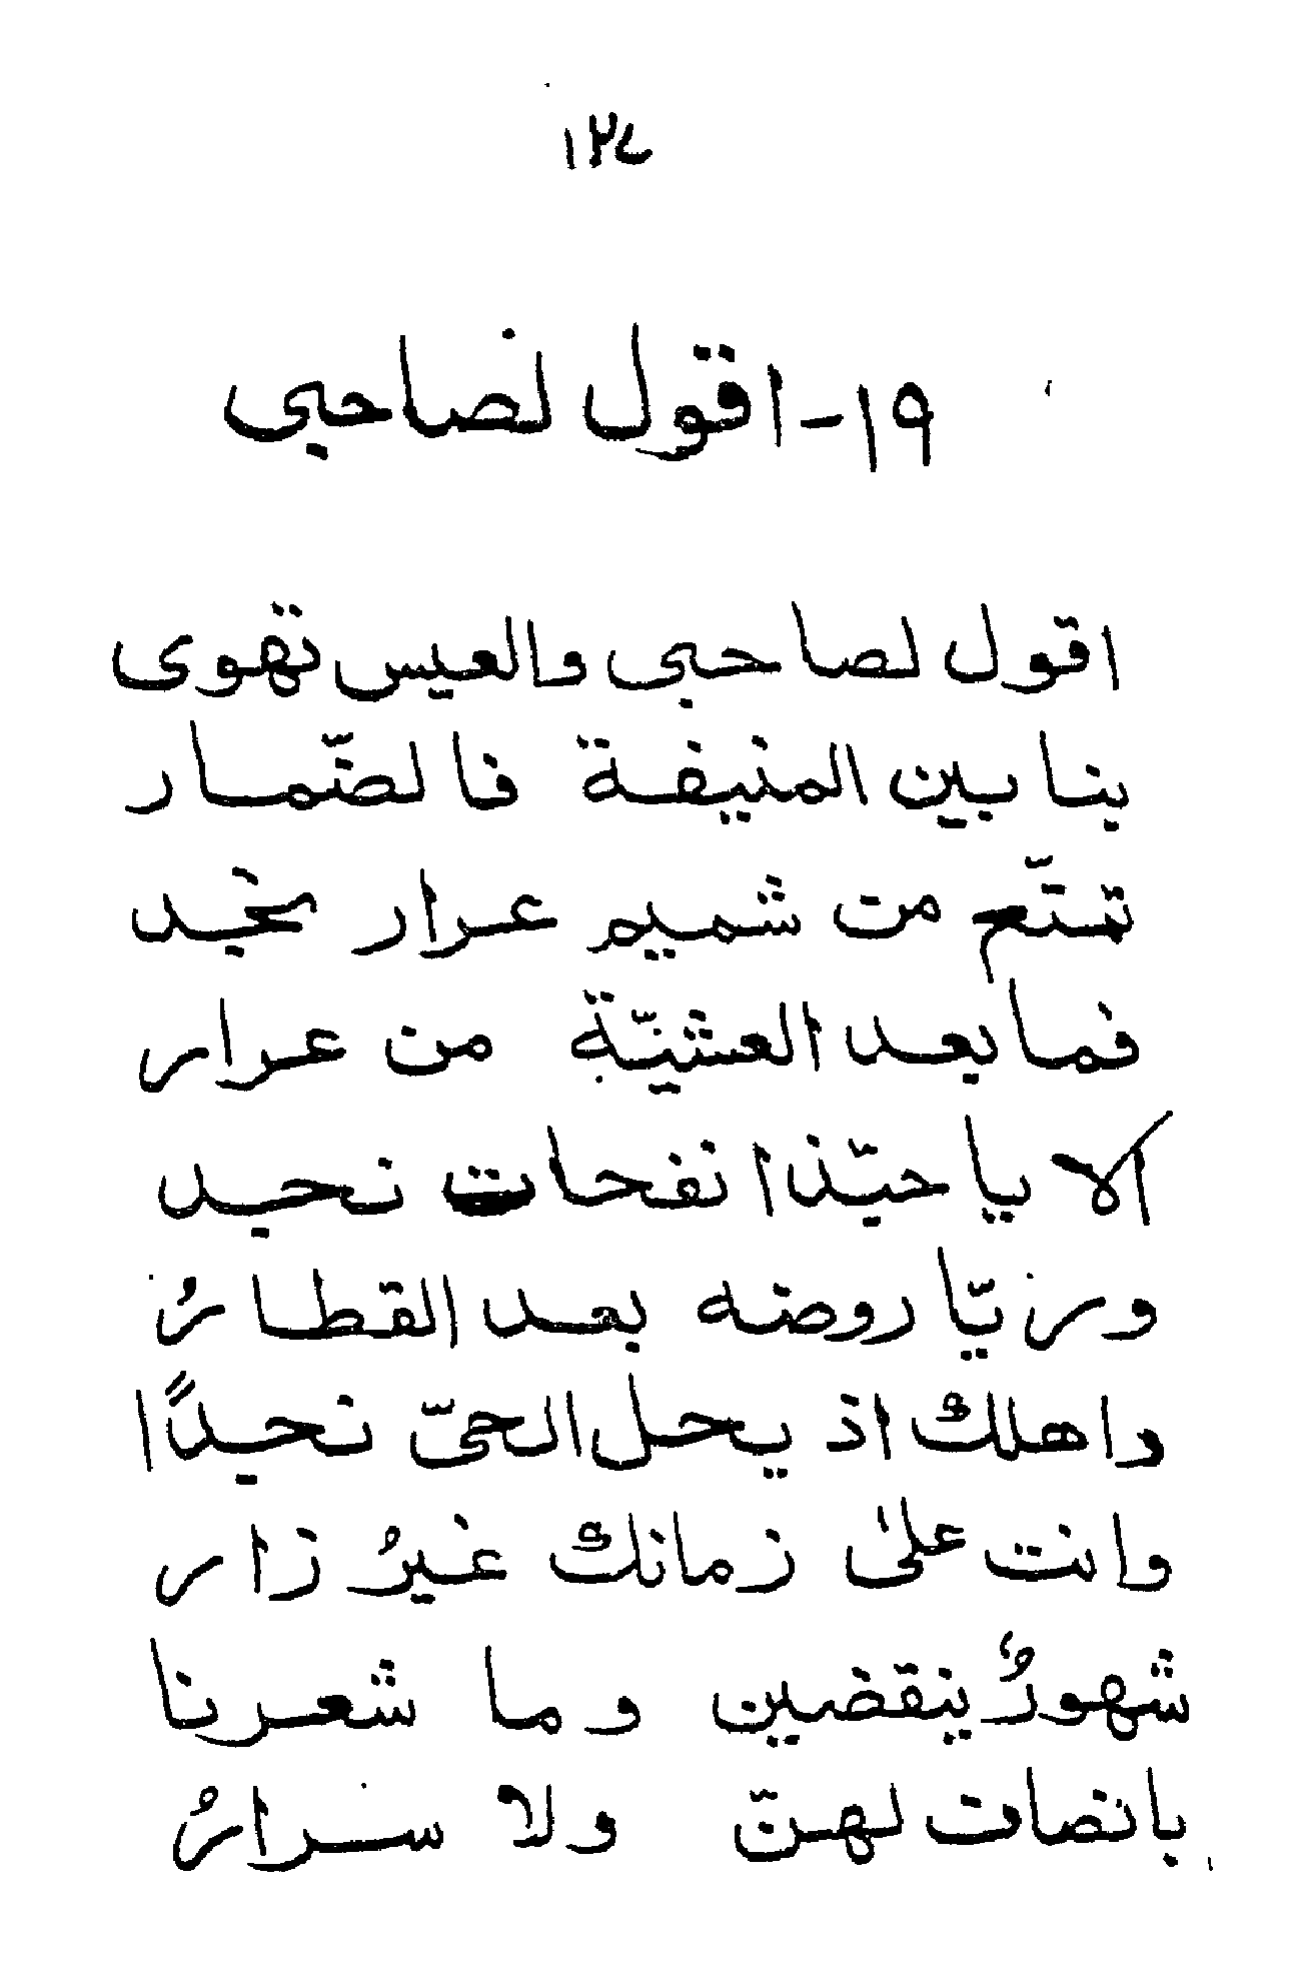 ١٢٤
١٩- اقول لصاحبي
اقول لصاحبي والعيس تهوى
بنا بين المنيفة فالضّمار
تمتّع من شميم عرار نجد
فما بعد العشيّة من عرار
الا يا حبّذا نفحات نجد
وريّا روضه بعد القطارُ
واهلك اذ يحل الحيّ نجدًا
وانت على زمانك غيرُ زار
شهورٌ ينقضين وما شعرنا
بانصاف لهنّ ولا سرارُ